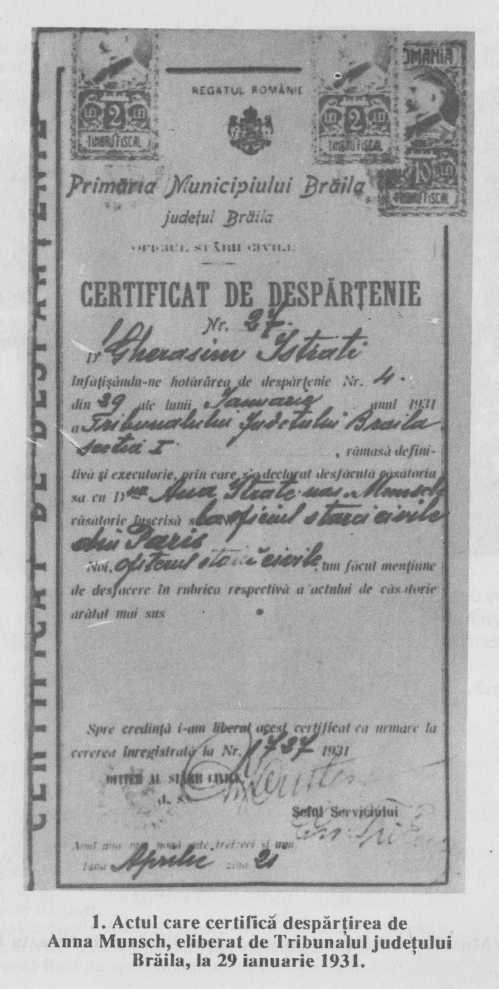 ROMANIA
2 2 10
TIMBRU FISCAL TIMBRU FISCAL TIMBRU FISCAL
REGATUL ROMÂNIEI
Primăria Municipiului Brăila
județul Brăila
OFICIUL STĂRII CIVILE
CERTIFICAT DE DESPĂRȚENIE
CERTIFICAT DE DESPĂRȚENIE
Nr. 27.
Dl Gherasim Istrati
înfățișându-ne hotărârea de despărțenie Nr. 4.
din 29 ale lunii Ianuarie anul 1931
a Tribunalului Județului Braila
sectia I , rămasă defini-
tivă și executorie, prin care s'a declarat desfăcută căsătoria
sa cu D-na Ana Istrate nas. Munsch
căsătorie înscrisă la oficiul starei civile
din Paris
Noi, ofiterul starei civile am făcut mențiune
de desfacere în rubrica respectivă a actului de căsătorie
arătat mai sus
Spre credință i-am liberat acest certificat ca urmare la
cererea înregistrată la Nr. 1737 1931
OFIȚER AL STĂRII CIVILE
Șeful Serviciului
Anul una mie nouă sute treizeci și unu
luna Aprilie ziua 21
1. Actul care certifică despărțirea de
Anna Munsch, eliberat de Tribunalul județului
Brăila, la 29 ianuarie 1931.